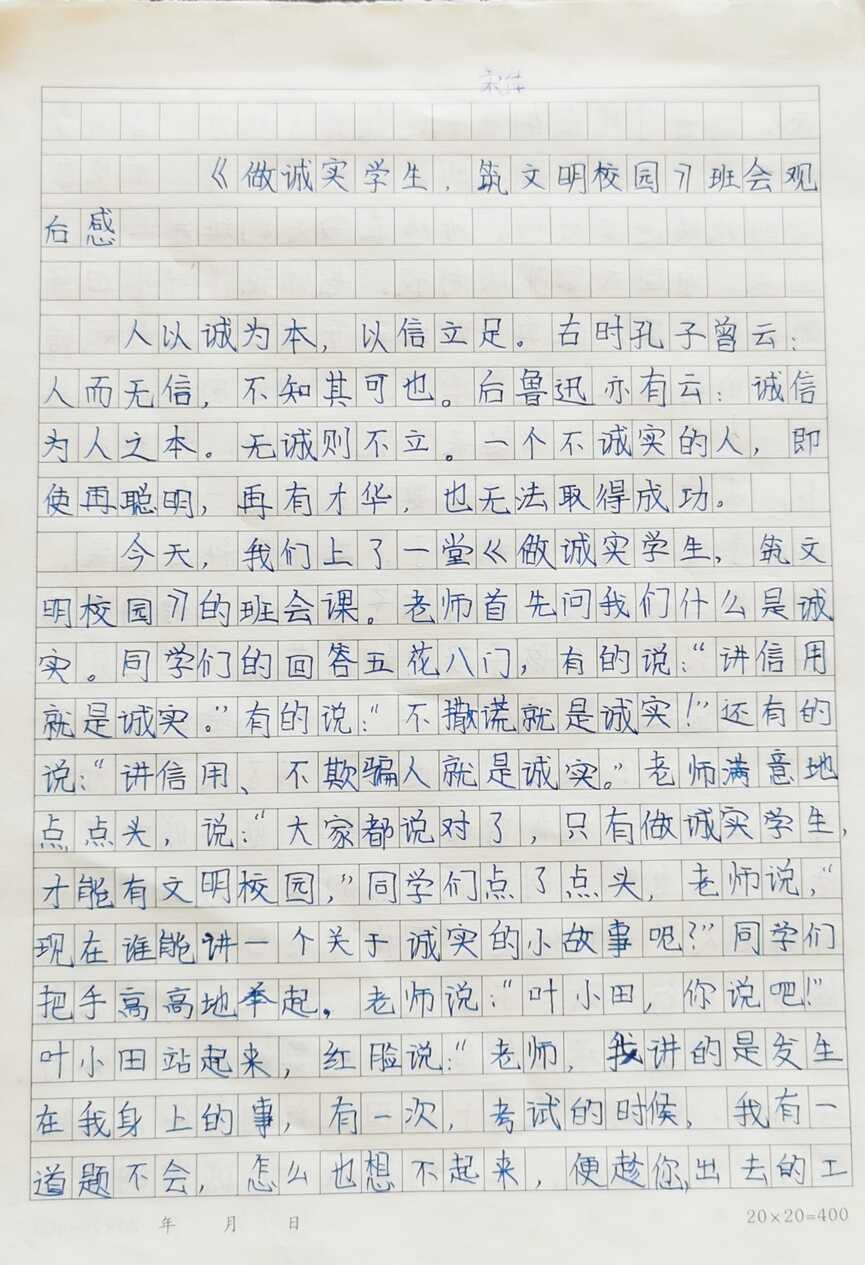 《做诚实学生，筑文明校园》班会观
后感
人以诚为本，以信立足。古时孔子曾云：
人而无信，不知其可也。后鲁迅亦有云：诚信
为人之本。无诚则不立。一个不诚实的人，即
使再聪明，再有才华，也无法取得成功。
今天，我们上了一堂《做诚实学生，筑文
明校园》的班会课。老师首先问我们什么是诚
实。同学们的回答五花八门，有的说：“讲信用
就是诚实。”有的说：“不撒谎就是诚实！”还有的
说：“讲信用、不欺骗人就是诚实。”老师满意地
点点头，说：“大家都说对了，只有做诚实学生，
才能有文明校园，”同学们点了点头，老师说，“
现在谁能讲一个关于诚实的小故事呢？”同学们
把手高高地举起。老师说：“叶小田，你说吧！”
叶小田站起来，红脸说：“老师，我讲的是发生
在我身上的事，有一次，考试的时候，我有一
道题不会，怎么也想不起来，便趁你出去的工
年 月 日
20×20=400